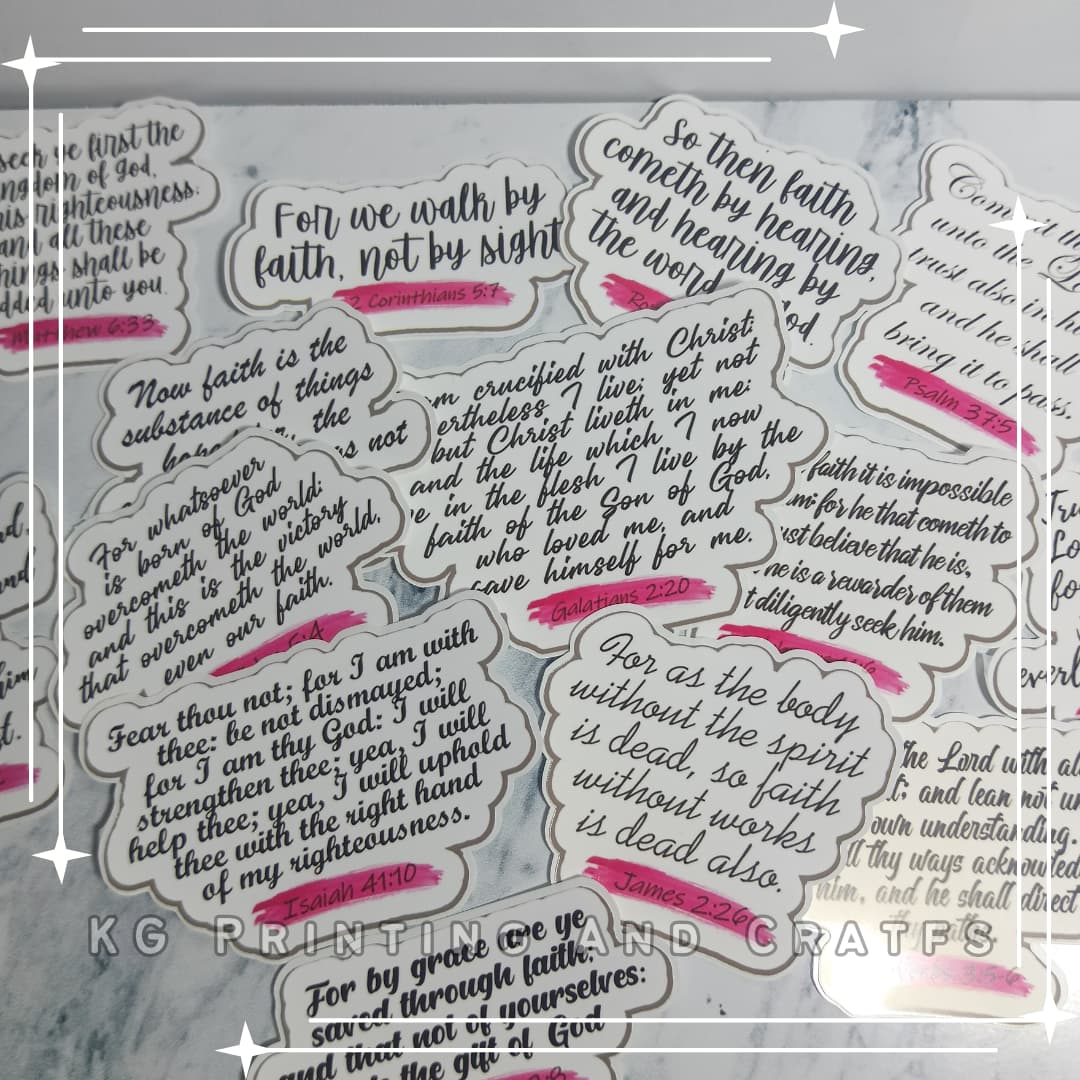 ye first the
of God,
righteousness;
and all these
shall be
unto you.
Matthew 6:33
For we walk by
faith, not by sight
2 Corinthians 5:7
So then faith
cometh by hearing,
and hearing by
the word
od.
Commit th
unto the Lo
trust also in h
and he shall
bring it to pass.
Psalm 37:5
Now faith is the
substance of things
the
s not
m crucified with Christ:
ertheless I live; yet not
but Christ liveth in me:
and the life which I now
e in the flesh I live by the
faith of the Son of God,
who loved me, and
gave himself for me.
Galatians 2:20
For whatsoever
is born of God
overcometh the world:
and this is the victory
that overcometh the world,
even our faith.
5:4
faith it is impossible
him: for he that cometh to
ust believe that he is,
he is a rewarder of them
t diligently seek him.
Fear thou not; for I am with
thee: be not dismayed;
for I am thy God: I will
strengthen thee; yea, I will
help thee; yea, I will uphold
thee with the right hand
of my righteousness.
Isaiah 41:10
For as the body
without the spirit
is dead, so faith
without works
is dead also.
James 2:26
the Lord with al
t; and lean not un
own understanding.
ll thy ways acknowled
him, and he shall direct
3:5-6
everl
him
st.
KG Printing and Cratfs
For by grace are ye
saved through faith;
and that not of yourselves:
the gift of God